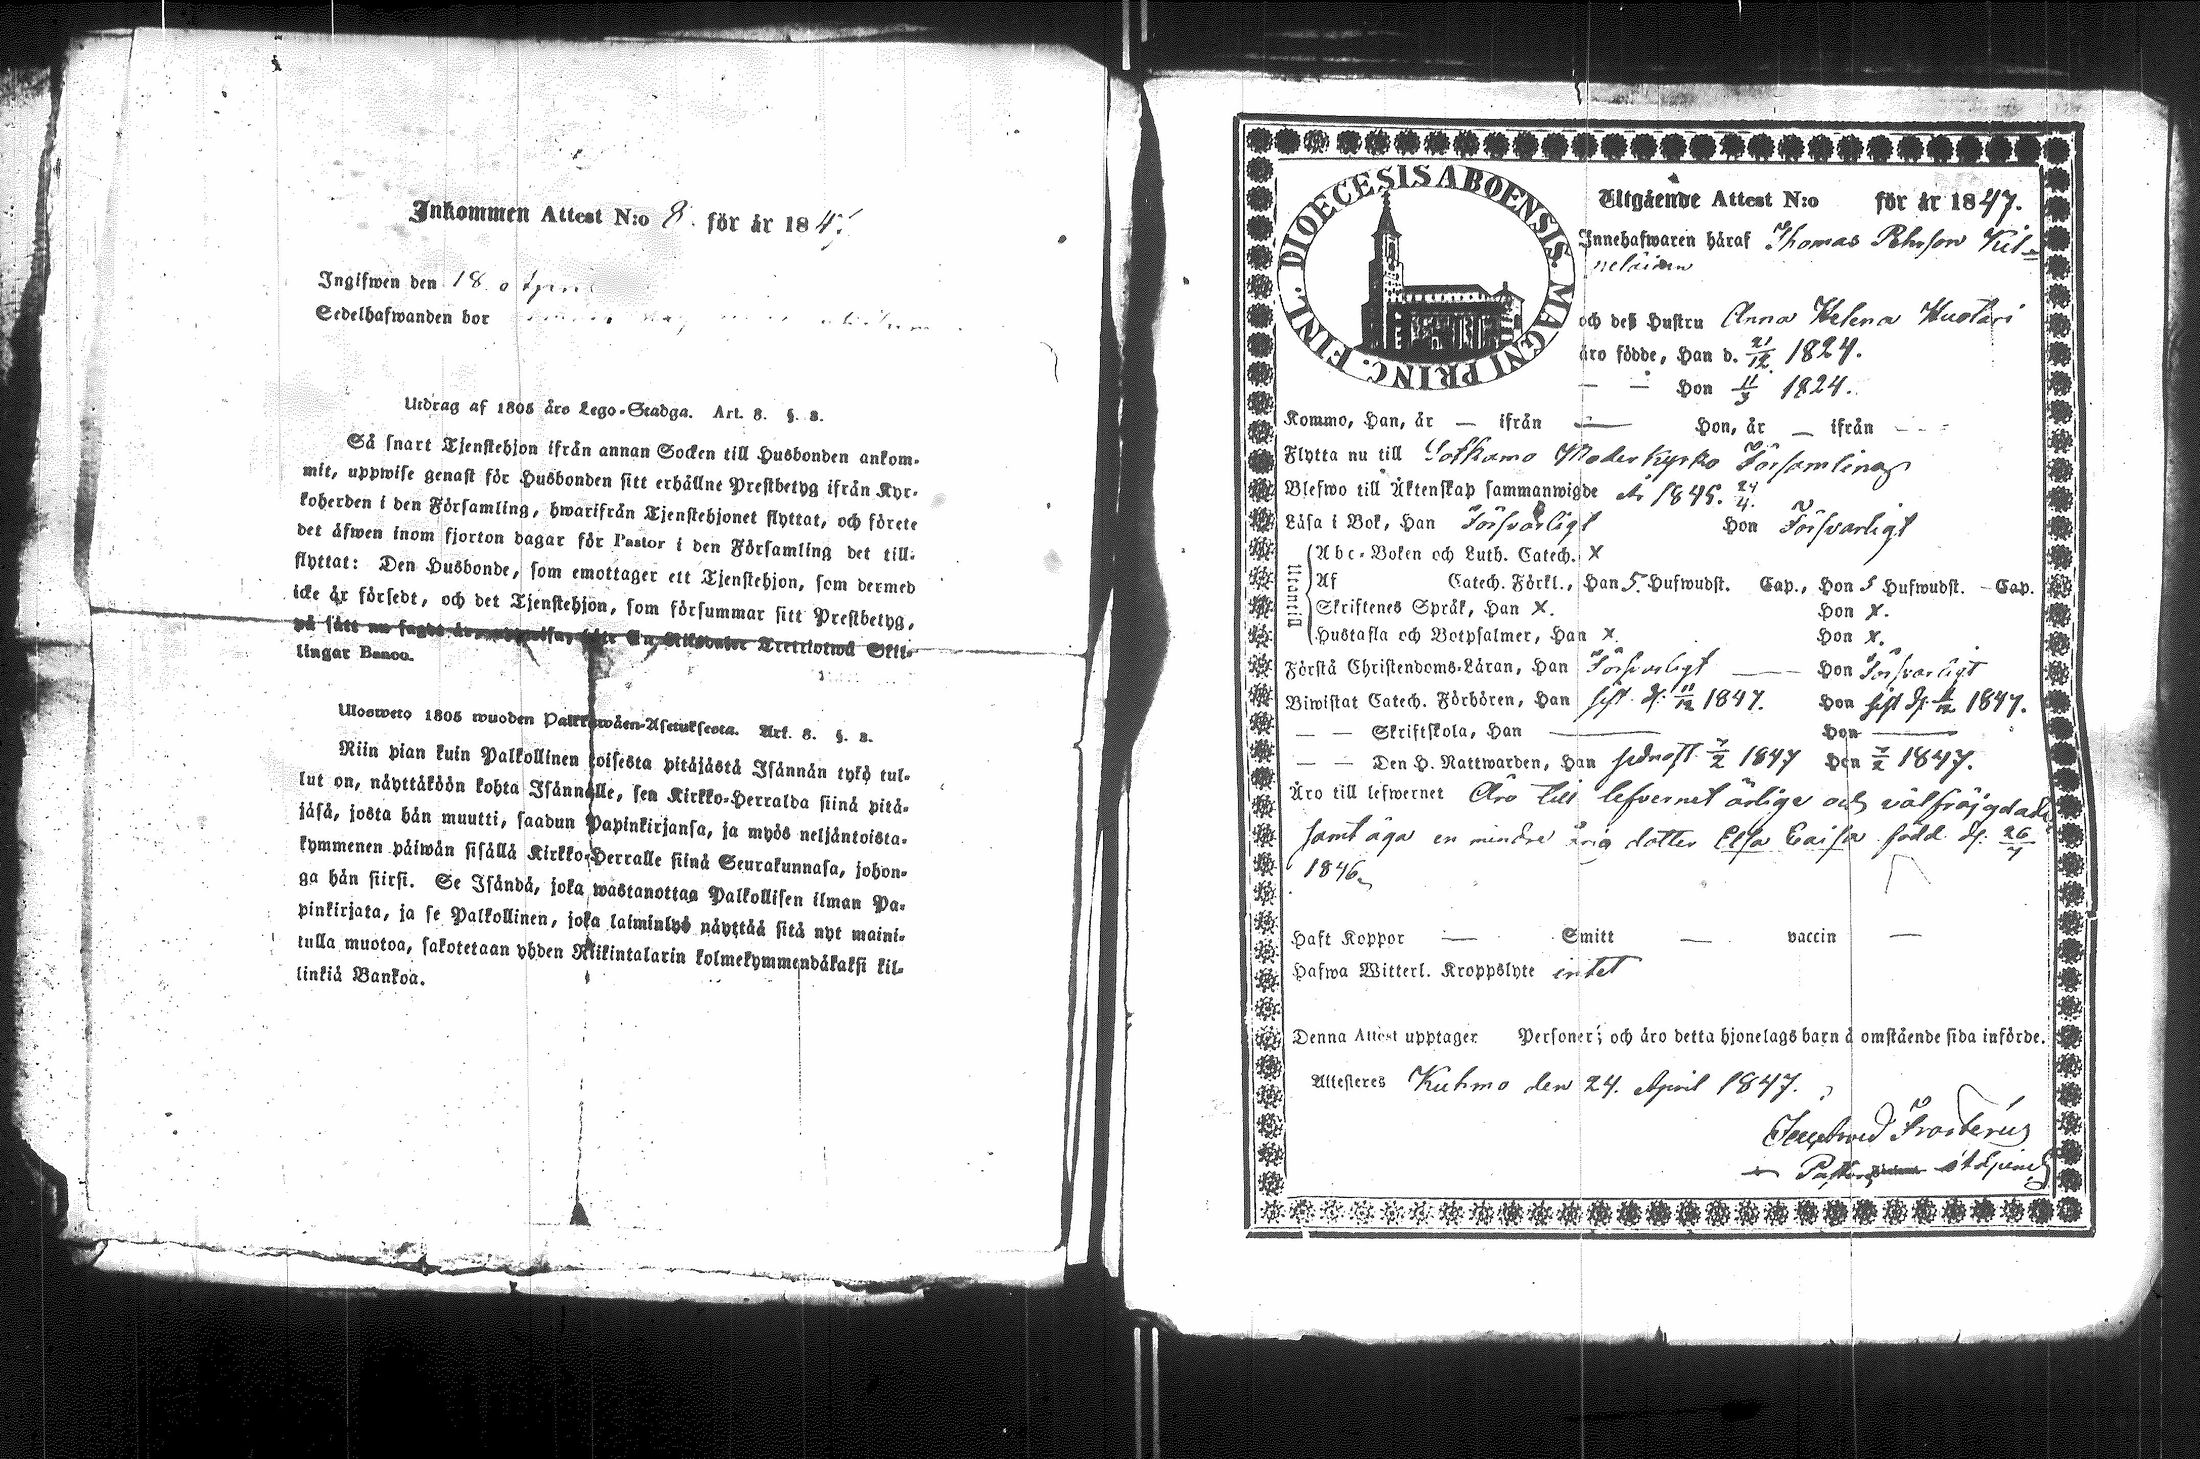 Inkommen Attest N:o 8. för år 184
Ingifwen den 18
Sedelhafwanden bor
Utdrag af 1805 års Lego-Stadga. Art. 8. §. 3.
Så snart Tjenstehjon ifrån annan Socken till Husbonden ankom-
mit, uppwise genast för Husbonden sitt erhållne Prestbetyg ifrån Kyr-
koherden i den Församling, hwarifrån Tjenstehjonet flyttat, och förete
det äfwen inom fjorton dagar för Pastor i den Församling det till-
flyttat: Den Husbonde, som emottager ett Tjenstehjon, som dermed
icke är försedt, och det Tjenstehjon, som försummar sitt Prestbetyg,
på sätt nu sagdt är, Riksdaler Trettiotwå Skil-
lingar Banco.
Ulosweto 1805 wuoden Palkkawäen-Asetuksesta. Art. 8. §. 3.
Niin pian kuin Palkollinen toisesta pitäjästä Isännän tykö tul-
lut on, näyttäköön kohta Isännälle, sen Kirkko-Herralda siinä pitä-
jäsä, josta hän muutti, saadun Papinkirjansa, ja myös neljäntoista-
kymmenen päiwän sisällä Kirkko-Herralle siinä Seurakunnasa, johon-
ga hän siirsi. Se Isändä, joka wastanottaa Palkollisen ilman Pa-
pinkirjata, ja se Palkollinen, joka laiminlyö näyttää sitä nyt maini-
tulla muotoa, sakotetaan yhden Riikintalarin kolmekymmendäkaksi kil-
linkiä Bankoa.
DIOECESIS ABOENSIS. MAGNI PRINC. FINL.
Utgående Attest N:o för år 1847.
Innehafwaren häraf Thomas Pehrson Kil=
neläinen
och deß Hustru Anna Helena Huotari
äro födde, Han d. 21/12 1824.
— — Hon 11/3 1824.
Kommo, Han, år — ifrån — Hon, år — ifrån - - -
Flytta nu till Sotkamo Moderkyrko Församling
Blefwo till Äktenskap sammanwigde År 1845. 24/4.
Läsa i Bok, Han Försvarligt Hon Försvarligt
Utantill
Abc-Boken och Luth. Catech. X
Af Catech. Förkl., Han 5. Hufwudst. Cap., Hon 5 Hufwudst. - Cap.
Skriftenes Språk, Han X. Hon X.
Hustafla och Botpsalmer, Han X. Hon X.
Förstå Christendoms-Läran, Han Försvarligt — Hon Försvarligt
Biwistat Catech. Förhören, Han sist d. 11/12 1847. Hon sist d. 1847.
— — Skriftskola, Han — Hon —
— — Den H. Nattwarden, Han sednast 7/2 1847 Hon 7/2 1847.
Äro till lefwernet Äro till lefvernet ärlige och välfräjgdade
samt äga en minderårig dotter Elsa Caisa född d. 26/7
1846.
Haft Koppor — Smitt — vaccin —
Hafwa Witterl. Kroppslyte intet
Denna Attest upptager Personer; och äro detta hjonelags barn å omstående sida införde.
Attesteres Kuhmo den 24. April 1847.
Frosterus